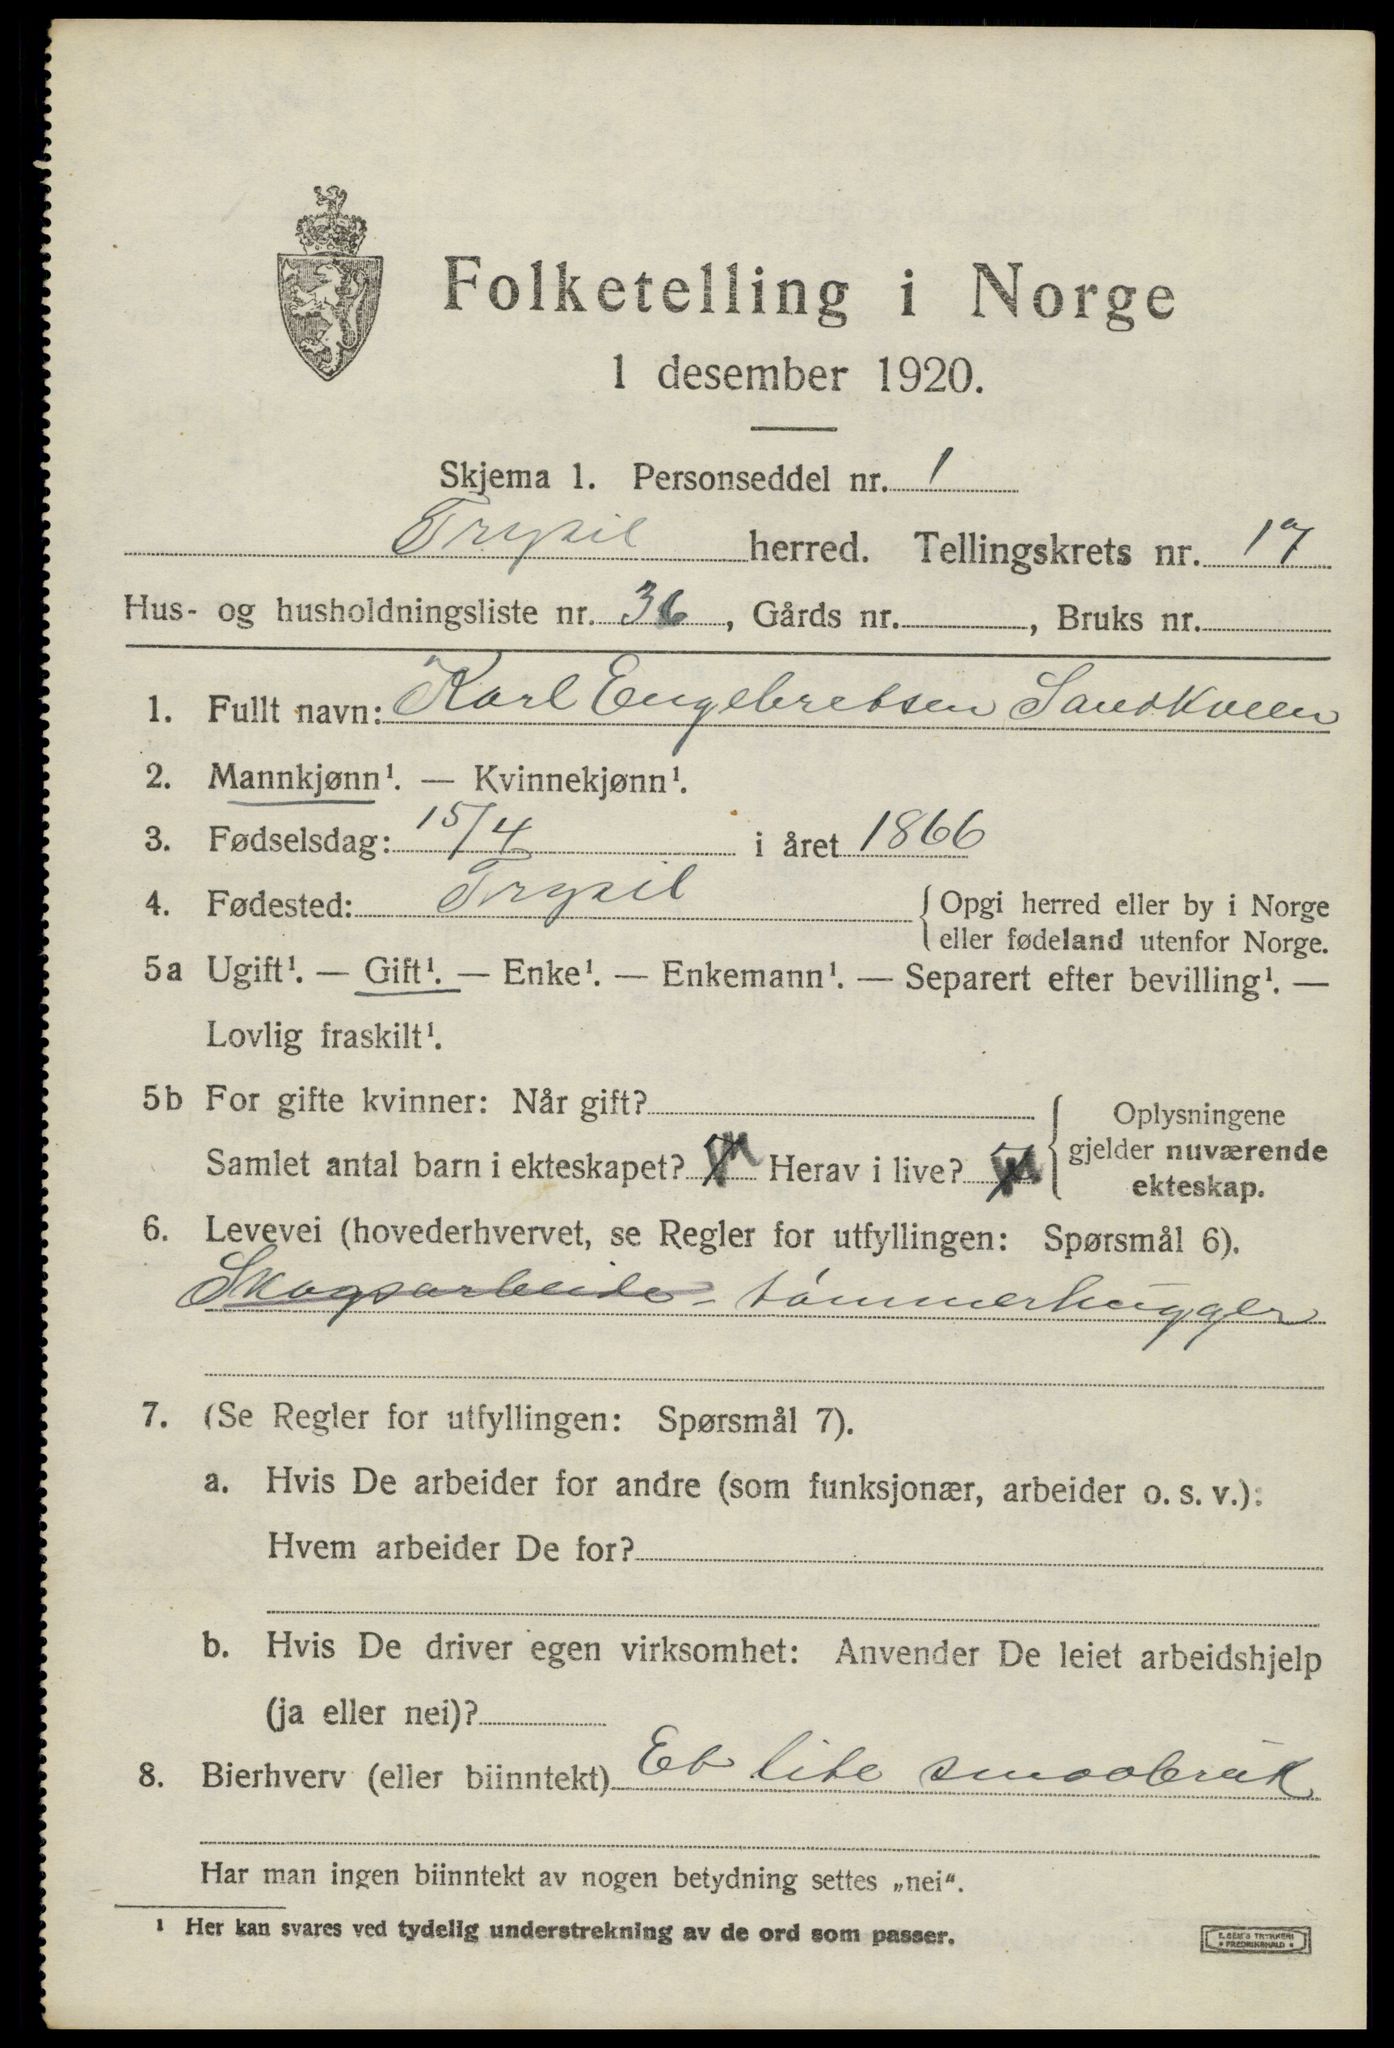 Folketelling i Norge
1 desember 1920.
Skjema 1. Personseddel nr. 1
Trysil herred. Tellingskrets nr. 17
Hus- og husholdningsliste nr. 36, Gårds nr. , Bruks nr.
1. Fullt navn: Karl Engebretsen Sandkveen
2. Mannkjønn¹. — Kvinnekjønn¹.
3. Fødselsdag: 15/4 i året 1866
4. Fødested: Trysil { Opgi herred eller by i Norge
eller fødeland utenfor Norge.
5a Ugift¹. — Gift¹. — Enke¹. — Enkemann¹. — Separert efter bevilling¹. —
Lovlig fraskilt¹.
5b For gifte kvinner: Når gift?
Samlet antal barn i ekteskapet? Herav i live?
{ Oplysningene
gjelder nuværende
ekteskap.
6. Levevei (hovederhvervet, se Regler for utfyllingen: Spørsmål 6).
Skogsarbeide - tømmerhugger
7. (Se Regler for utfyllingen: Spørsmål 7).
a. Hvis De arbeider for andre (som funksjonær, arbeider o. s. v.):
Hvem arbeider De for?
b. Hvis De driver egen virksomhet: Anvender De leiet arbeidshjelp
(ja eller nei)?
8. Bierhverv (eller biinntekt) Et lite smaabruk
Har man ingen biinntekt av nogen betydning settes „nei“.
¹ Her kan svares ved tydelig understrekning av de ord som passer.
E. SEM'S TRYKKERI
• FREDRIKSHALD •